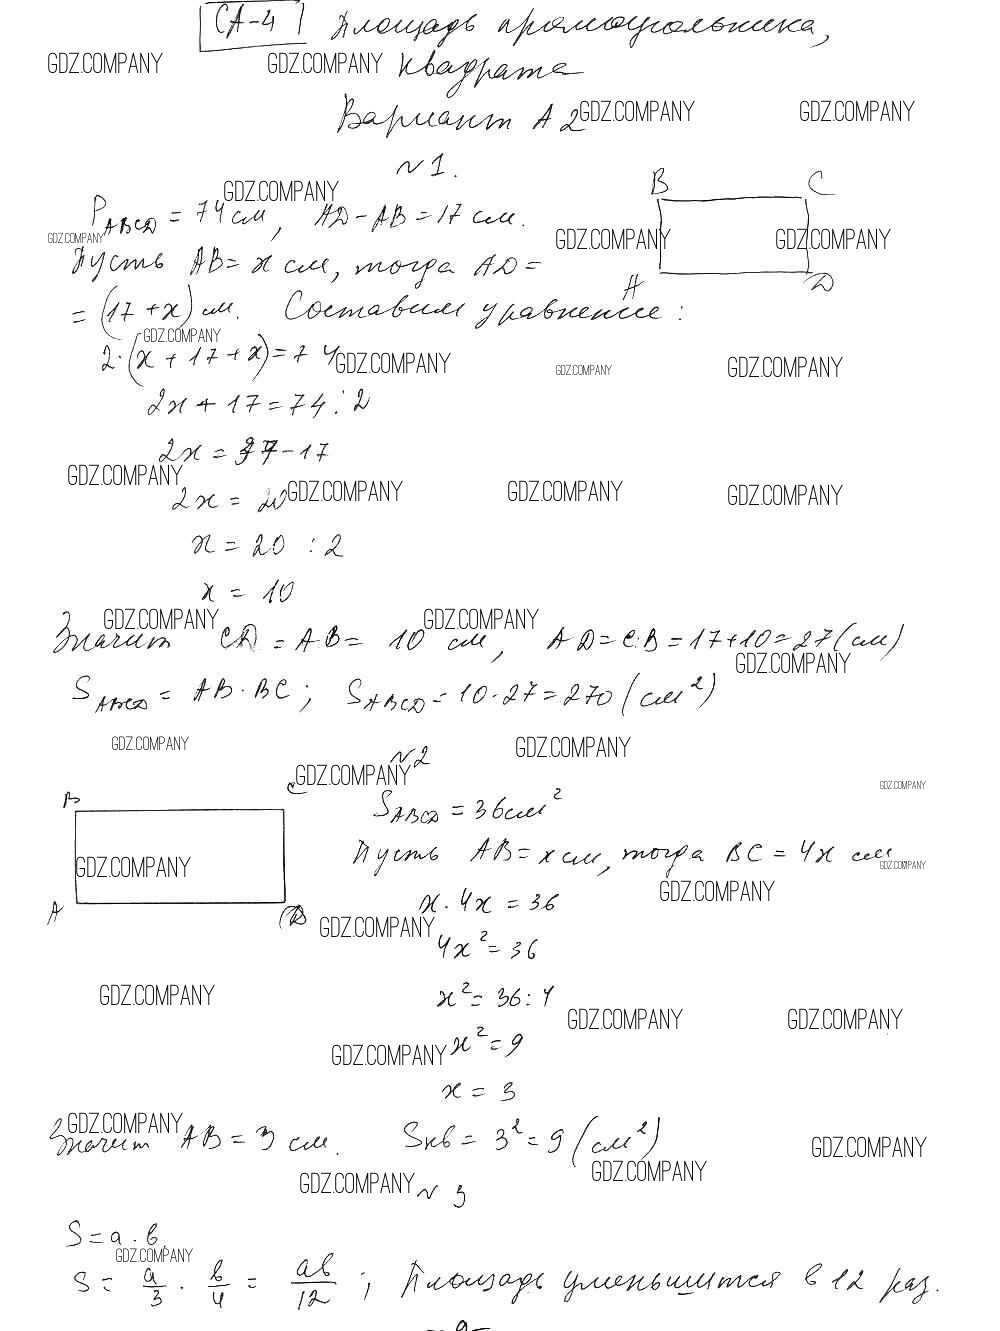 СА-4 Площадь прямоугольника,
GDZ.COMPANY GDZ.COMPANY квадрата
Вариант А2 GDZ.COMPANY GDZ.COMPANY
№1.
GDZ.COMPANY B C
P_ABCD = 74 см, AD - AB = 17 см.
GDZ.COMPANY GDZ.COMPANY GDZ.COMPANY
Пусть AB = x см, тогда AD =
A D
= (17 + x) см. Составим уравнение:
GDZ.COMPANY
2·(x + 17 + x) = 74 GDZ.COMPANY GDZ.COMPANY GDZ.COMPANY
2x + 17 = 74 : 2
2x = 37 - 17
GDZ.COMPANY GDZ.COMPANY GDZ.COMPANY GDZ.COMPANY
2x = 20
x = 20 : 2
x = 10
GDZ.COMPANY GDZ.COMPANY
Значит CD = AB = 10 см, AD = CB = 17 + 10 = 27 (см)
GDZ.COMPANY
S_ABCD = AB · BC; S_ABCD = 10 · 27 = 270 (см²)
GDZ.COMPANY GDZ.COMPANY
№2
GDZ.COMPANY GDZ.COMPANY
B C
S_ABCD = 36 см²
Пусть AB = x см, тогда BC = 4x см
GDZ.COMPANY GDZ.COMPANY
GDZ.COMPANY
x · 4x = 36
A D
GDZ.COMPANY
4x² = 36
x² = 36 : 4
GDZ.COMPANY GDZ.COMPANY GDZ.COMPANY
x² = 9
GDZ.COMPANY
x = 3
GDZ.COMPANY
Значит AB = 3 см. Sкв = 3² = 9 (см²)
GDZ.COMPANY
GDZ.COMPANY GDZ.COMPANY
№3
S = a · b.
GDZ.COMPANY
S = a/3 · b/4 = ab/12; Площадь уменьшится в 12 раз.